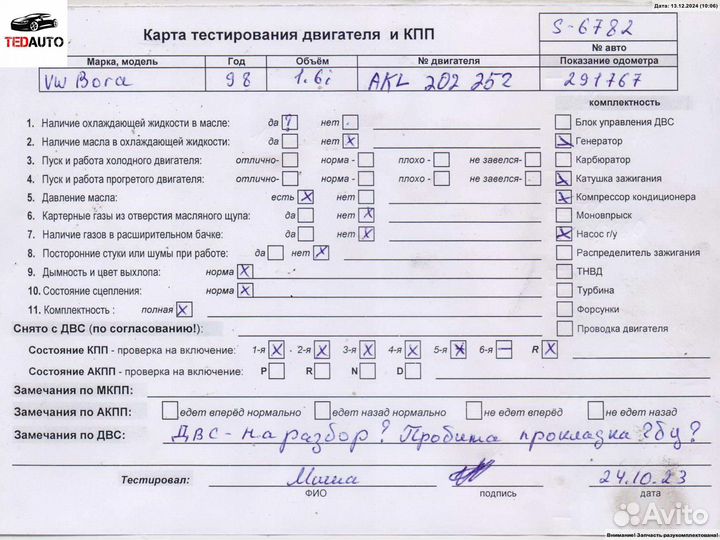 Дата: 13.12.2024 (10:06)
TEDAUTO
Карта тестирования двигателя и КПП
S-6782
№ авто
Марка, модель Год Объём № двигателя Показание одометра
VW Bora 98 1.6i AKL 202 252 291767
комплектность
1. Наличие охлаждающей жидкости в масле: да ? нет
Блок управления ДВС
2. Наличие масла в охлаждающей жидкости: да нет X
Генератор
3. Пуск и работа холодного двигателя: отлично- норма - плохо - не завелся-
Карбюратор
4. Пуск и работа прогретого двигателя: отлично- норма - плохо - не завелся-
Катушка зажигания
5. Давление масла: есть X нет
Компрессор кондиционера
6. Картерные газы из отверстия масляного щупа: да нет X
Моновпрыск
7. Наличие газов в расширительном бачке: да нет X
Насос г/у
8. Посторонние стуки или шумы при работе: да нет X
Распределитель зажигания
9. Дымность и цвет выхлопа: норма X
ТНВД
10. Состояние сцепления: норма X
Турбина
11. Комплектность : полная X
Форсунки
Снято с ДВС (по согласованию!):
Проводка двигателя
Состояние КПП - проверка на включение: 1-я X 2-я X 3-я X 4-я X 5-я X 6-я — R X
Состояние АКПП - проверка на включение: P R N D
Замечания по МКПП:
Замечания по АКПП: едет вперёд нормально едет назад нормально не едет вперёд не едет назад
Замечания по ДВС: ДВС - на разбор? Пробита прокладка ? бц?
Тестировал: Миша 24.10.23
ФИО подпись дата
Avito
Внимание! Запчасть разукомплектована!